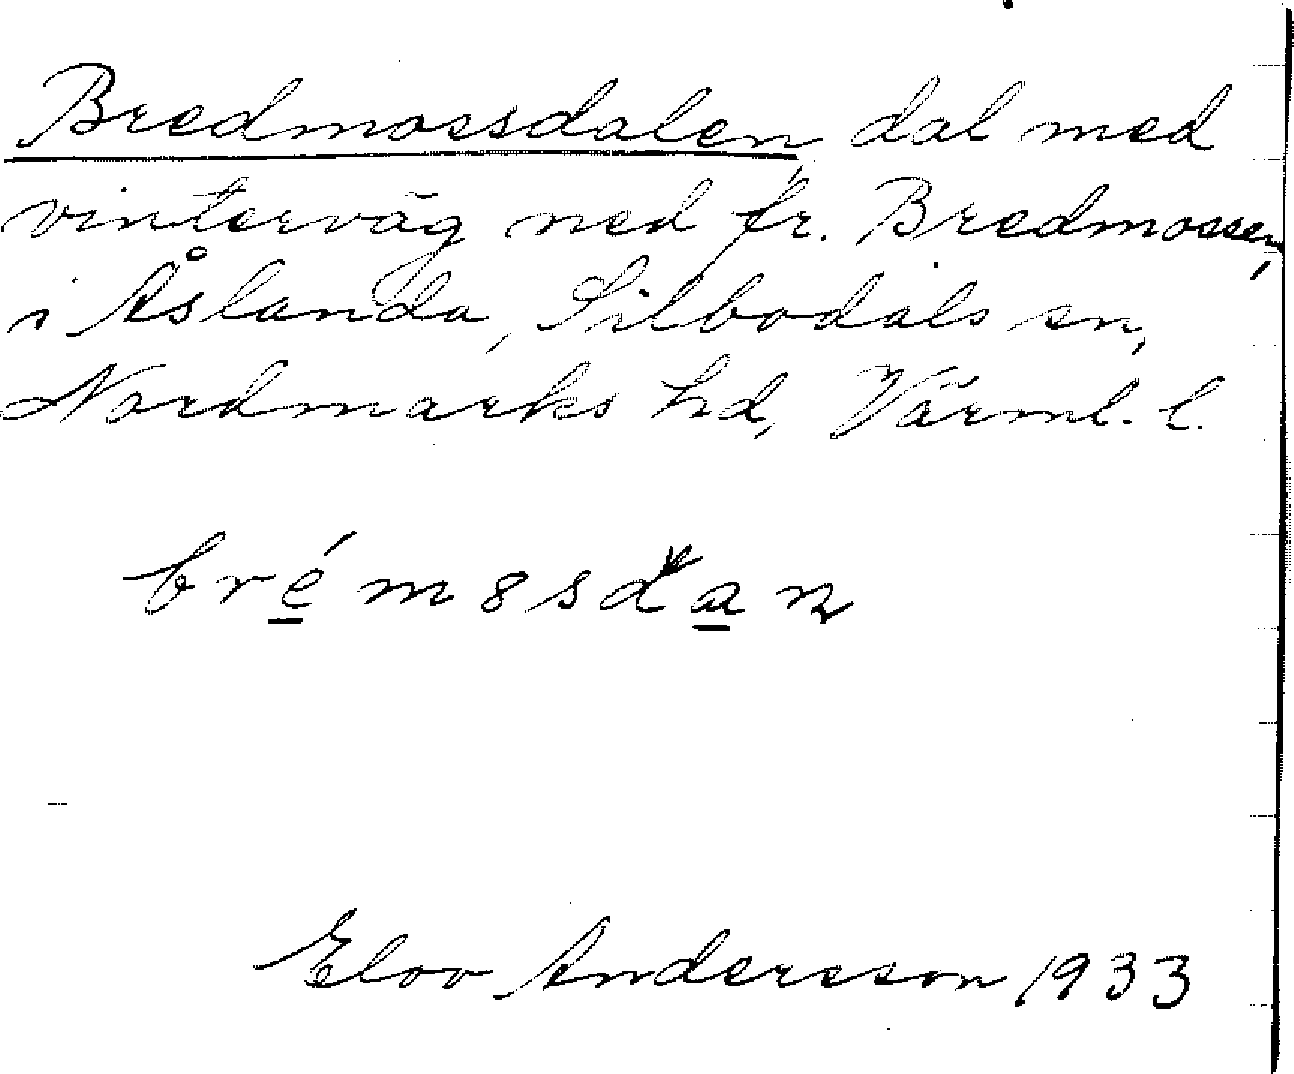 Bredmossdalen, dal med
vinterväg ned fr. Bredmossen,
i Åslanda, Silbodals sn,
Nordmarks hd, Värml. l.
Elov Andersson 1933